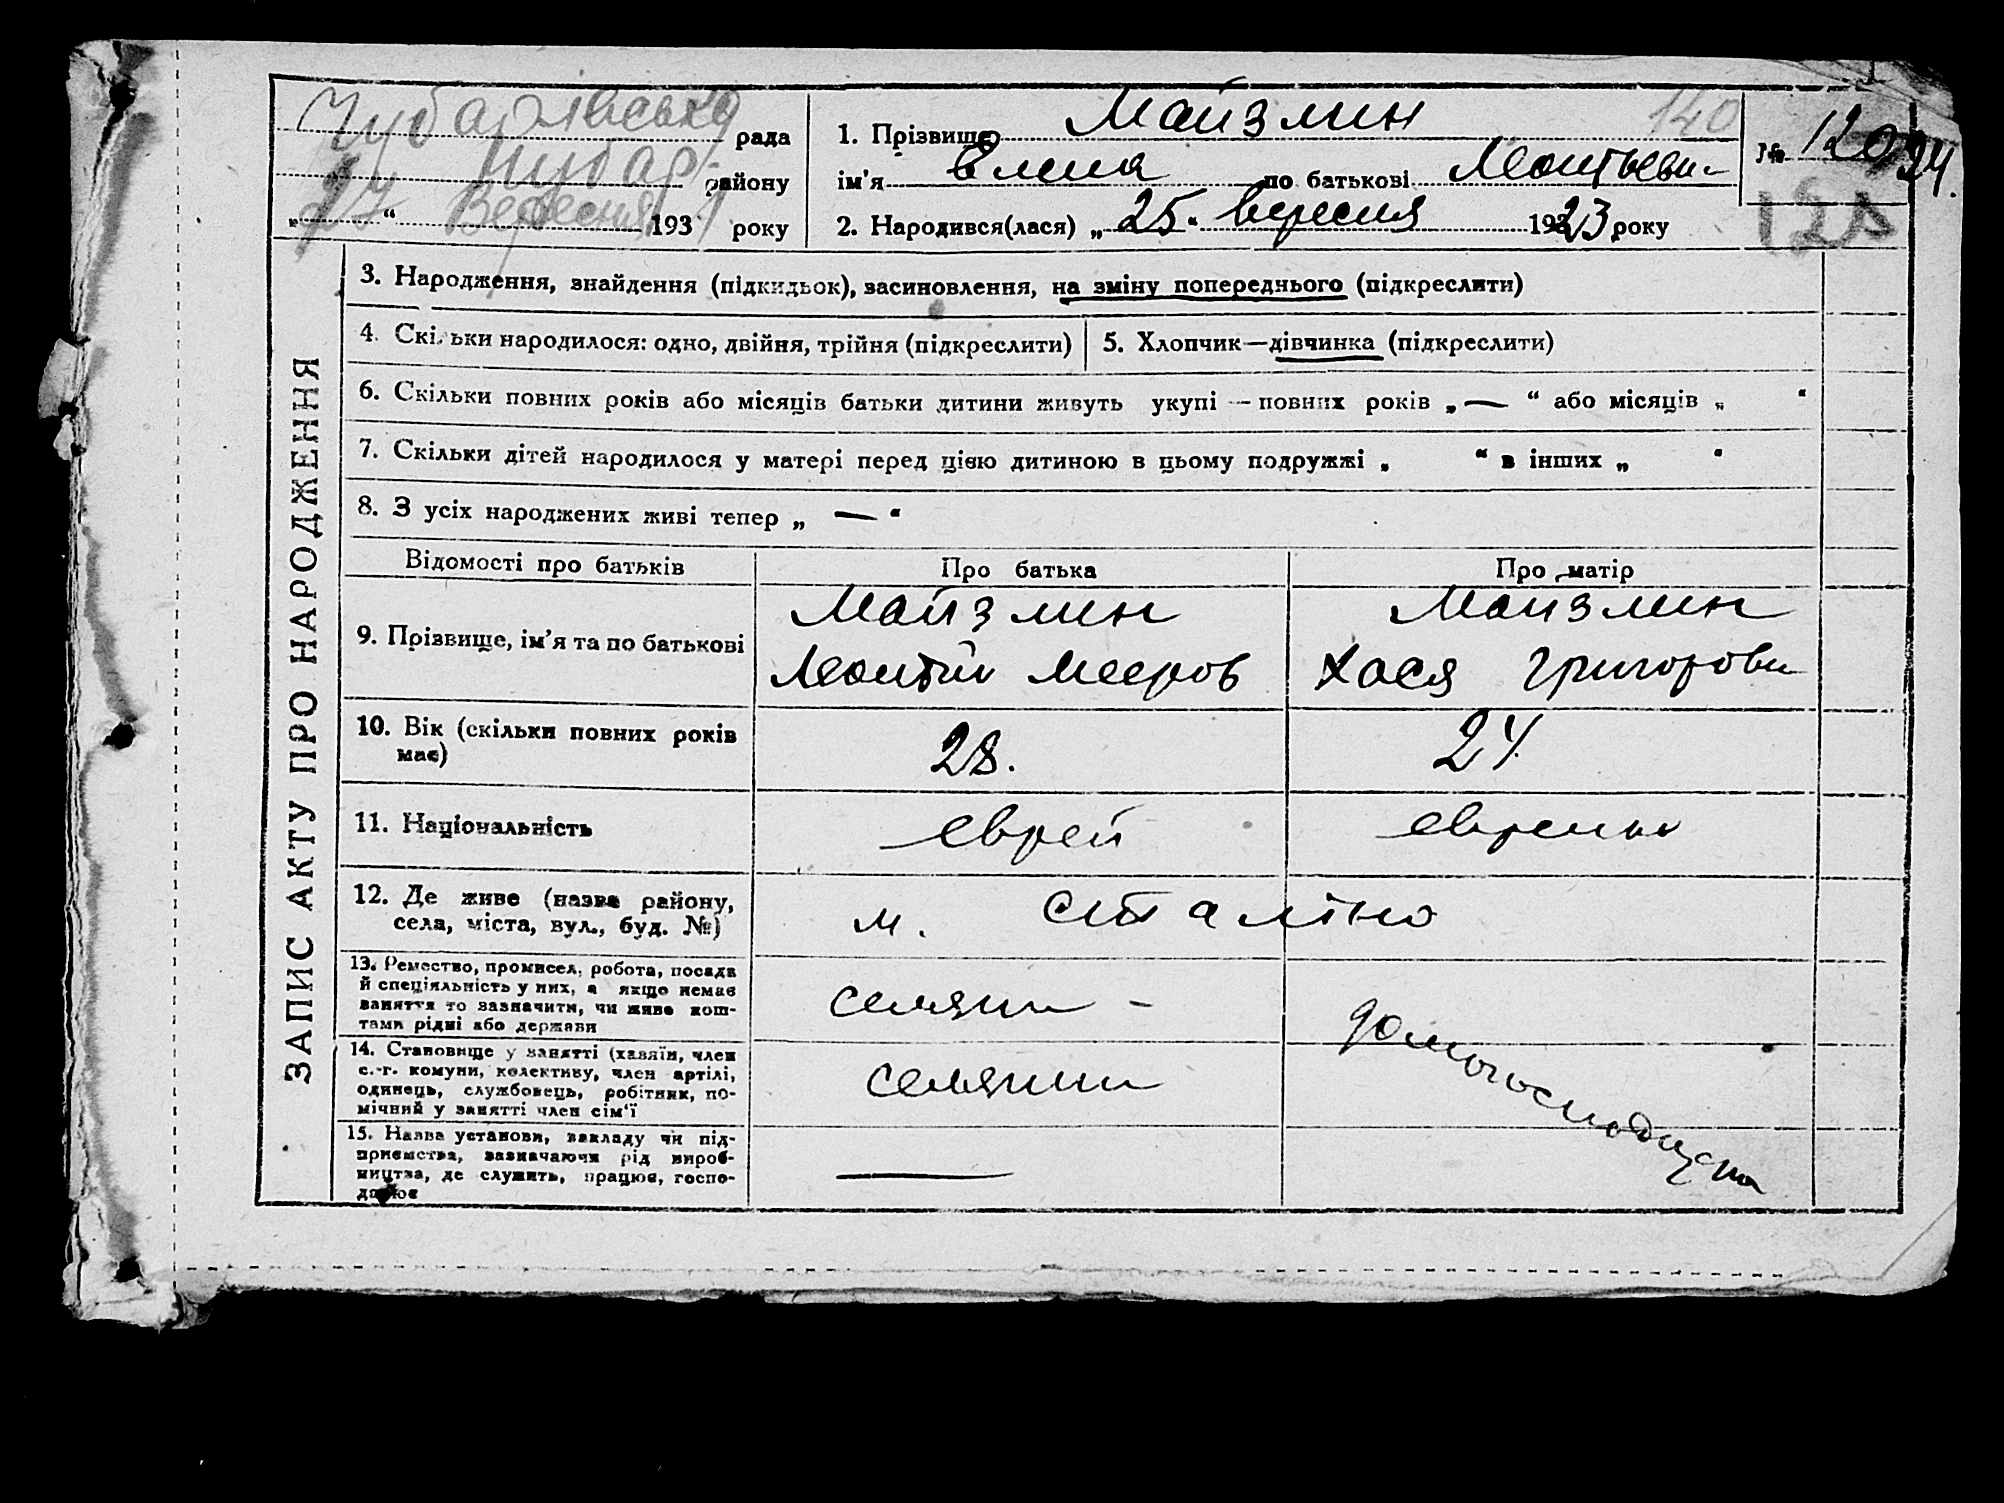 Чубарівська рада
Чубар. району
„27“ Вересня 193 року
1. Прізвище Майзлин
140
ім'я Елина по батькові Леонтьевн
2. Народився(лася) „25“ вересня 1923 року
№ 120
24.
128
ЗАПИС АКТУ ПРО НАРОДЖЕННЯ
3. Народження, знайдення (підкидьок), засиновлення, на зміну попереднього (підкреслити)
4. Скільки народилося: одно, двійня, трійня (підкреслити)
5. Хлопчик—дівчинка (підкреслити)
6. Скільки повних років або місяців батьки дитини живуть укупі — повних років „—“ або місяців „ “
7. Скільки дітей народилося у матері перед цією дитиною в цьому подружжі „ “ в інших „ “
8. З усіх народжених живі тепер „ — “
Відомості про батьків
Про батька
Про матір
9. Прізвище, ім'я та по батькові
Майзлин
Леонтій Мееров
Майзлин
Хася Григоровн
10. Вік (скільки повних років
має)
28.
24
11. Національність
еврей
еврейка
12. Де живе (назва району,
села, міста, вул., буд. №)
м. Сталіно
13. Ремество, промисел, робота, посада
й спеціяльність у них, а якщо немає
заняття то зазначити, чи живе кош-
тами рідні або держави
селянин -
домогосподарка
14. Становище у занятті (хазяїн, член
с.-г. комуни, колективу, член артілі,
одинець, службовець, робітник, по-
мічний у занятті член сім'ї
селянин
15. Назва установи, закладу чи під-
приємства, зазначаючи рід вироб-
ництва, де служить, працює, госпо-
дарює
—